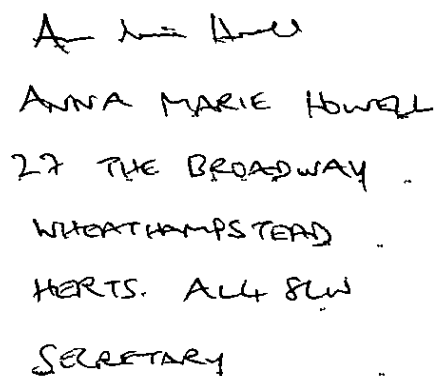 ANNA MARIE HOWELL
27 THE BROADWAY
WHEATHAMPSTEAD
HERTS. AL4 8LW
SECRETARY